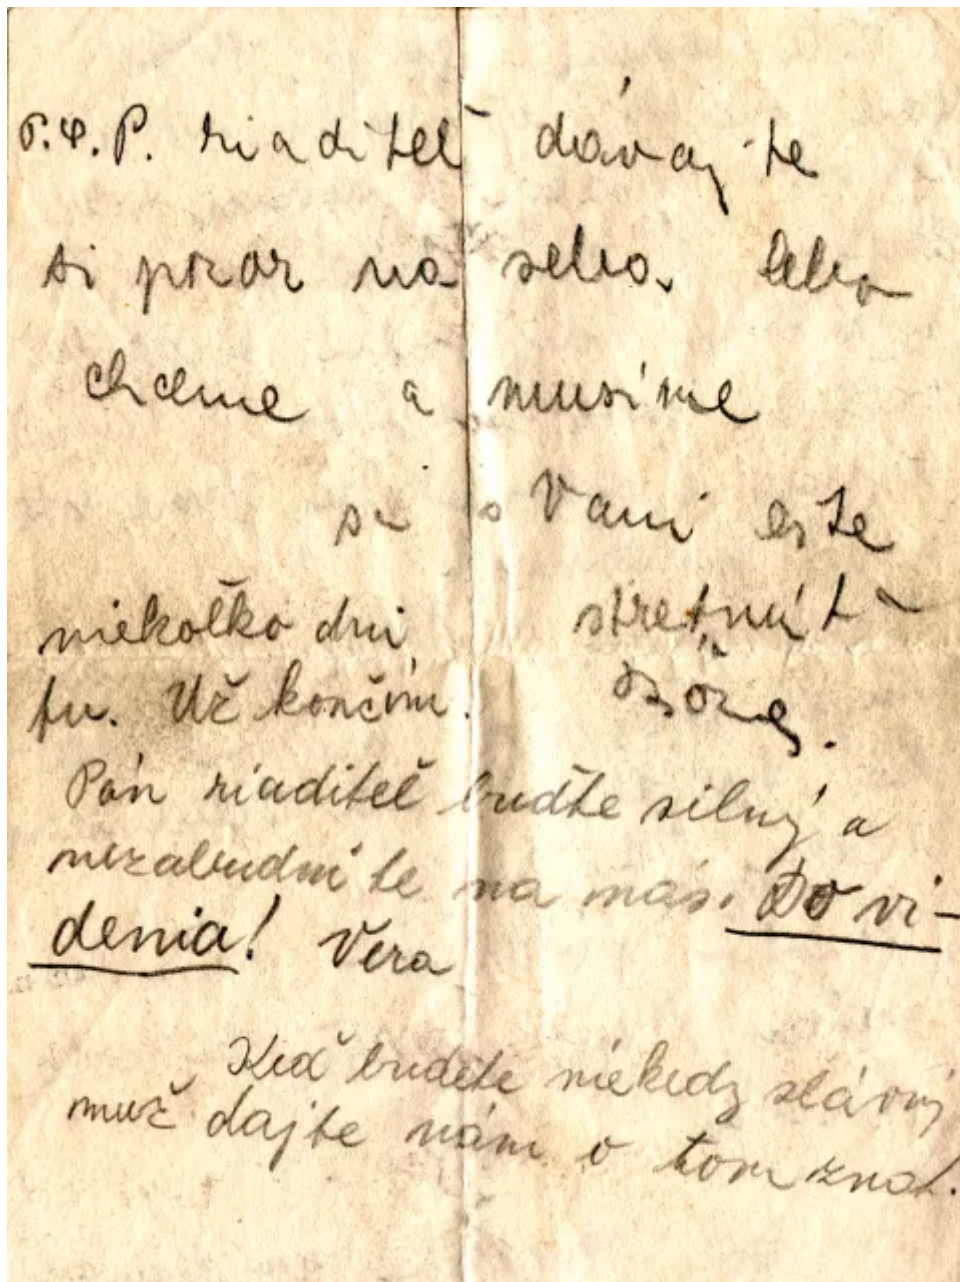 P.S. P. riaditeľ dávajte
si pozor na seba. lebo
chceme a musíme
sa s Vami ešte
niekoľko dni stretnúť
tu. Už končím.
Pán riaditeľ buďte silný a
nezabudnite na nás. Do vi-
denia! Vera
Keď budete niekedy slávny
muž dajte nám o tom znat.